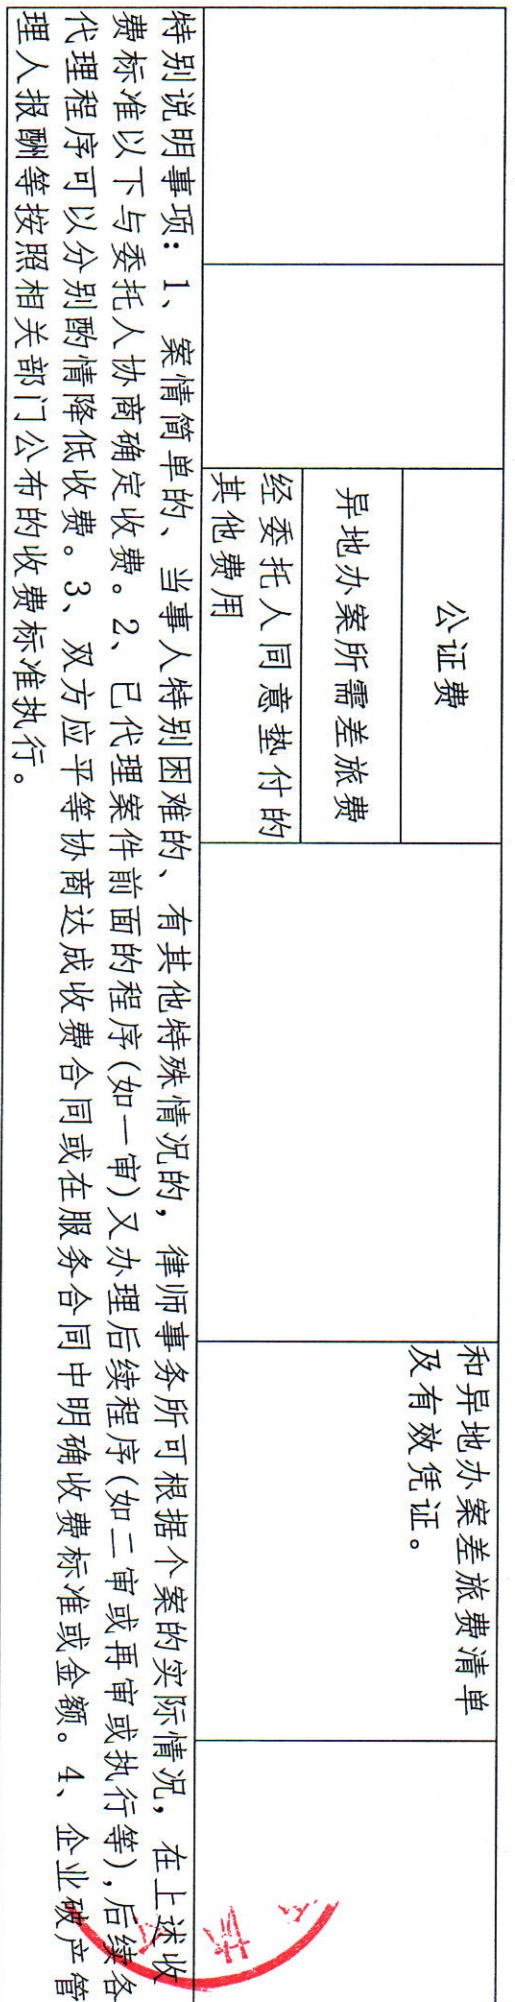 公证费
异地办案所需差旅费
经委托人同意垫付的
其他费用
和异地办案差旅费清单
及有效凭证。
特别说明事项：1、案情简单的、当事人特别困难的、有其他特殊情况的，律师事务所可根据个案的实际情况，在上述收
费标准以下与委托人协商确定收费。2、已代理案件前面的程序(如一审)又办理后续程序(如二审或再审或执行等),后续各
代理程序可以分别酌情降低收费。3、双方应平等协商达成收费合同或在服务合同中明确收费标准或金额。4、企业破产管
理人报酬等按照相关部门公布的收费标准执行。